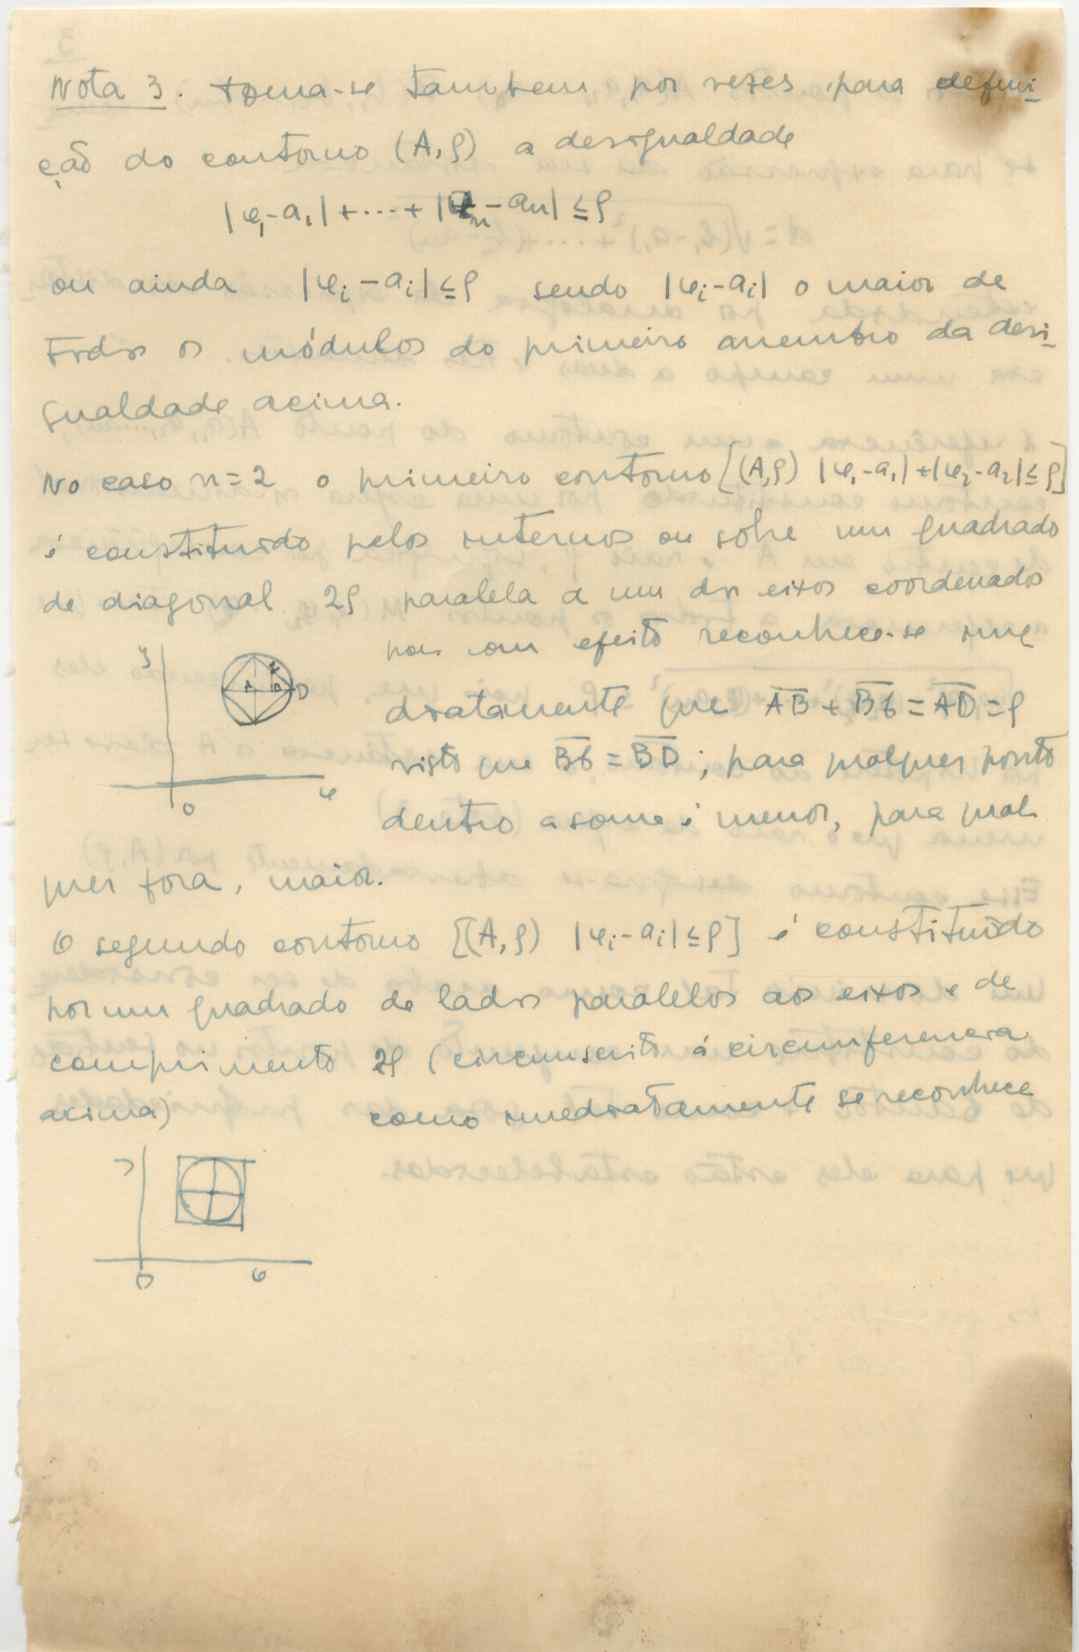 Nota 3. toma-se tambem por vezes para defini-
ção do contorno (A,ρ) a desigualdade
|φ₁-a₁|+...+|φₙ-aₙ|≤ρ
ou ainda |φᵢ-aᵢ|≤ρ sendo |φᵢ-aᵢ| o maior de
todos os módulos do primeiro membro da desi-
gualdade acima.
No caso n=2 o primeiro contorno [(A,ρ) |φ₁-a₁|+|φ₂-a₂|≤ρ]
é constituido pelos internos ou sôbre um quadrado
de diagonal 2ρ paralela a um dos eixos coordenados
pois com efeito reconhece-se ime
diatamente que AB+BC=AD=ρ
visto que BC=BD; para qualquer ponto
dentro a soma é menor, para qual
quer fora, maior.
y
A B D
O φ
O segundo contorno [(A,ρ) |φᵢ-aᵢ|≤ρ] é constituido
por um quadrado de lados paralelos aos eixos e de
comprimento 2ρ (circunscrito á circunferencia
acima) como imediatamente se reconhece
O φ